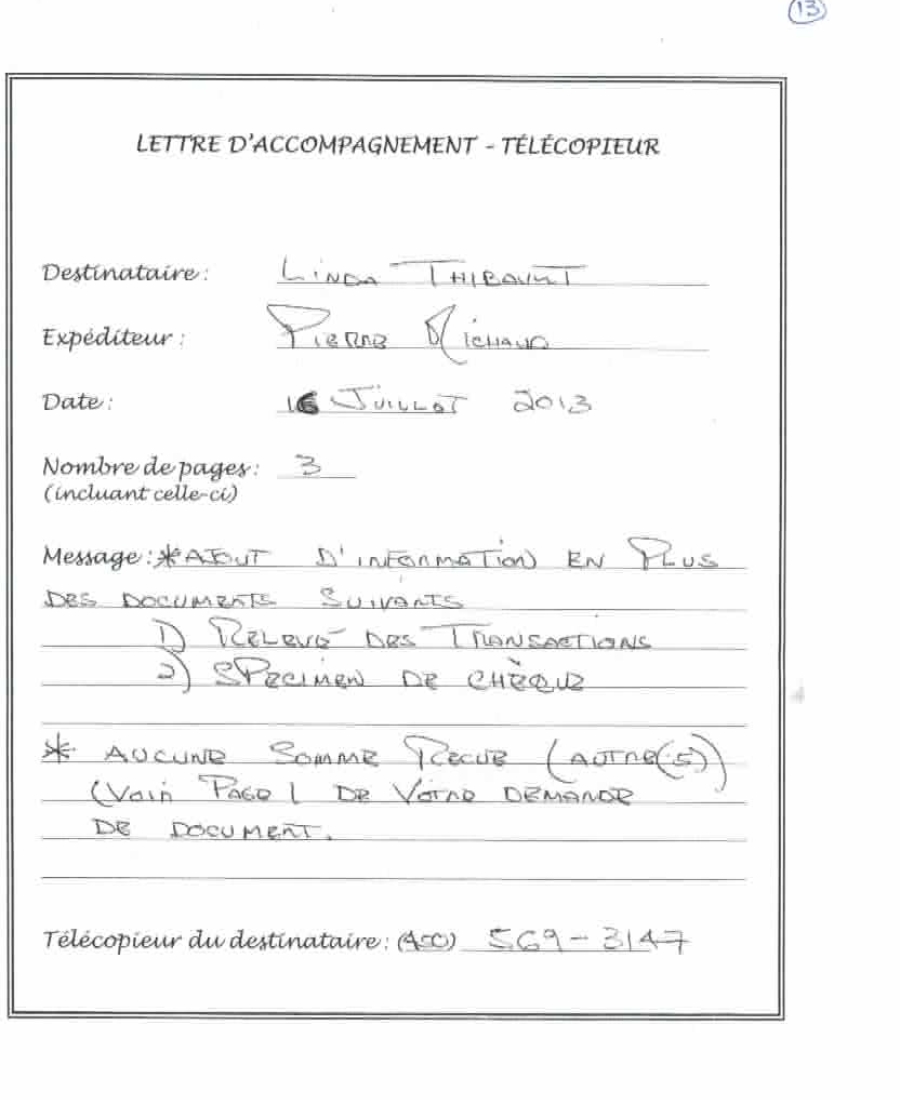 13
LETTRE D'ACCOMPAGNEMENT - TÉLÉCOPIEUR
Destinataire : LINDA THIBAULT
Expéditeur : PIERRE RICHAUD
Date : 16 JUILLET 2013
Nombre de pages : 3
(incluant celle-ci)
Message : *AJOUT D'INFORMATION EN PLUS
DES DOCUMENTS SUIVANTS
1) RELEVÉ DES TRANSACTIONS
2) SPECIMEN DE CHÈQUE
* AUCUNE SOMME RECUE (AUTRE(S))
(VOIR PAGE 1 DE VOTRE DEMANDE
DE DOCUMENT.
Télécopieur du destinataire : (450) 569-3147